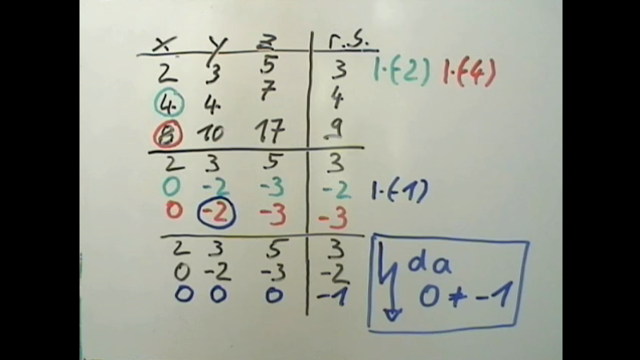 x y z r.s.
2 3 5 3 |·(-2) |·(-4)
4 4 7 4
8 10 17 9
2 3 5 3
0 -2 -3 -2 |·(-1)
0 -2 -3 -3
2 3 5 3
0 -2 -3 -2
0 0 0 -1
da
0 ≠ -1